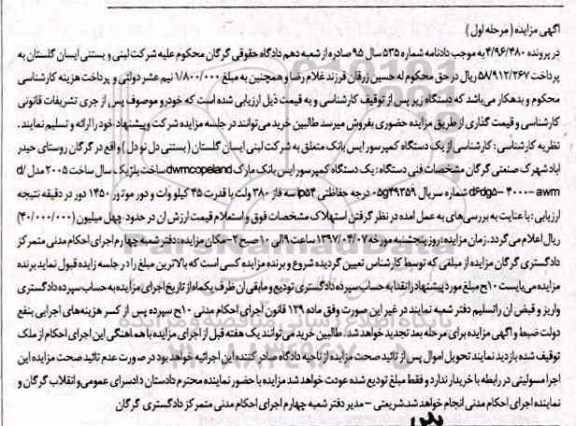 آگهی مزایده ( مرحله اول )
در پرونده ۴/۹۶/۴۸۰ به موجب دادنامه شماره ۵۳۵ سال ۹۵ صادره از شعبه دهم دادگاه حقوقی گرگان محکوم علیه شرکت لبنی و بستنی ایسان گلستان به
پرداخت ۵۸/۹۱۲/۲۶۷ ریال در حق محکوم له حسین زرقان فرزند غلام رضا و همچنین به مبلغ ۱/۸۰۰/۰۰۰ نیم عشر دولتی و پرداخت هزینه کارشناسی
محکوم و بدهکار می‌باشد که دستگاه زیر پس از توقیف کارشناسی و به قیمت ذیل ارزیابی شده است که خودرو موصوف پس از جری تشریفات قانونی
کارشناسی و قیمت گذاری از طریق مزایده حضوری بفروش میرسد طالبین خرید می‌توانند در جلسه مزایده شرکت و پیشنهاد خود را ارائه و تسلیم نمایند .
نظریه کارشناسی : کارشناسی از یک دستگاه کمپرسور ایس بانک متعلق به شرکت لبنی ایسان گلستان ( بستنی دل تو دل ) واقع در گرگان روستای حیدر
آباد شهرک صنعتی گرگان مشخصات فنی دستگاه : یک دستگاه کمپرسور ایس بانک مارک dwmcopeland ساخت بلژیک سال ساخت ۲۰۰۵ مدل d/
d۶dg۵- ۴۰۰۰- awm شماره سریال ۰۵g۴۹۳۵۹ درجه حفاظتی ip۵۴ سه فاز ۳۸۰ ولت با قدرت ۴۵ کیلو وات و دور موتور ۱۴۵۰ دور در دقیقه نتیجه
ارزیابی : با عنایت به بررسی‌های به عمل امده در نظر گرفتن استهلاک مشخصات فوق و استعلام قیمت ارزش ان در حدود چهل میلیون (۴۰/۰۰۰/۰۰۰)
ریال اعلام می‌گردد . زمان مزایده : روز پنجشنبه مورخه ۱۳۹۷/۰۴/۰۷ ساعت ۹ الی ۱۰ صبح ۲- مکان مزایده : دفتر شعبه چهارم اجرای احکام مدنی متمرکز
دادگستری گرگان مزایده از مبلغی که توسط کارشناس تعیین گردیده شروع و برنده مزایده کسی است که بالاترین مبلغ را در جلسه زایده قبول نماید برنده
مزایده می‌بایست ۱۰ح مبلغ مورد پیشنهاد را نقدا به حساب سپرده دادگستری تودیع و مابقی ان ظرف یکماه از تاریخ اجرای مزایده به حساب سپرده دادگستری
واریز و قبض ان راتسلیم دفتر شعبه نمایند در غیر این صورت وفق ماده ۱۲۹ قانون اجرای احکام مدنی ۱۰ح سپرده پس از کسر هزینه‌های اجرایی بنفع
دولت ضبط و اگهی مزایده برای مرحله بعد تجدید خواهد شد. طالبین خرید می‌توانند یک هفته قبل از اجرای مزایده با هماهنگی این اجرای احکام از ملک
توقیف شده بازدید نمایند تحویل اموال پس از تائید صحت مزایده از ناحیه دادگاه صادر کننده این اجرائیه خواهد بود در صورت عدم تائید صحت مزایده این
اجرا مسولیتی در رابطه با خریدار ندارد و فقط مبلغ تودیع شده عودت خواهد شد مزایده با حضور نماینده محترم دادستان دادسرای عمومی و انقلاب گرگان و
نماینده اجرای احکام مدنی انجام خواهد شد شریعتی - مدیر دفتر شعبه چهارم اجرای احکام مدنی متمرکز دادگستری گرگان